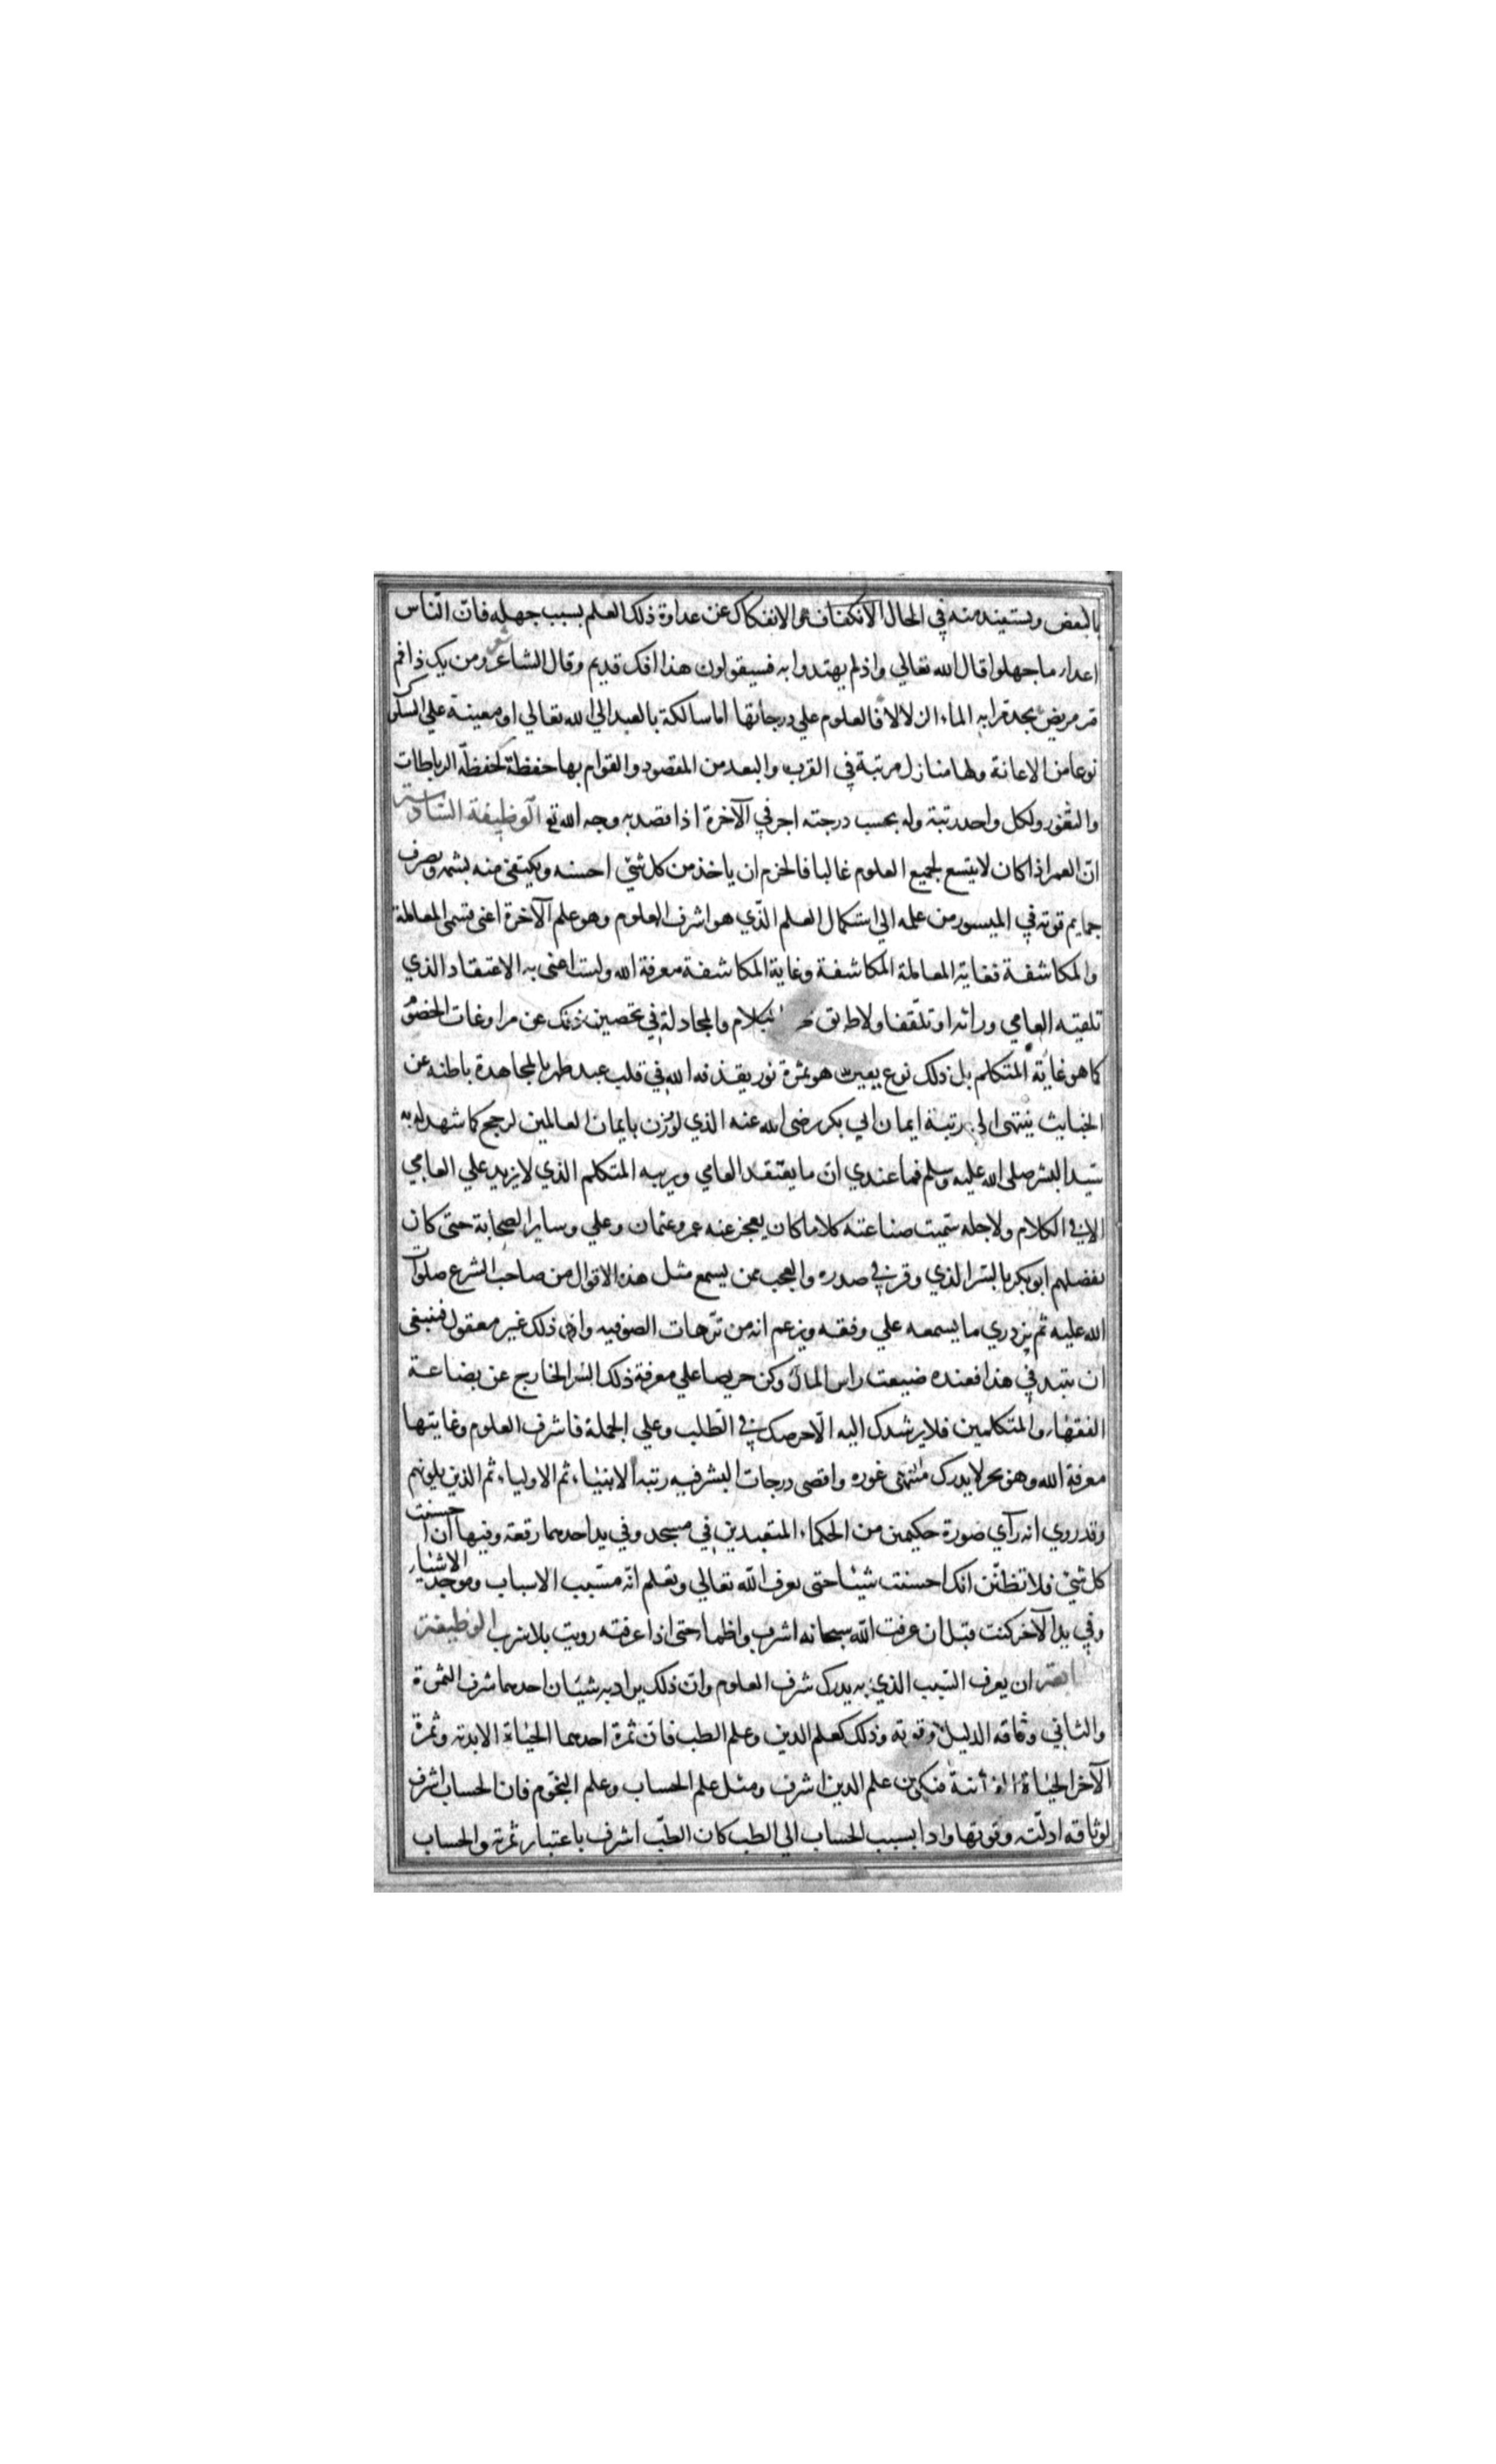 بالبعض ويستفيد منه في الحال الانكفاف عن الانفكاك عن عداوة ذلك العلم بسبب جهله فان الناس
اعداء ما جهلوا قال الله تعالي واذ لم يهتدوا به فسيقولون هذا افك قديم وقال الشاعر شعر ومن يك ذا فم
مر مريض يجد مرا به الماء الزلالا فالعلوم علي درجاتها اما سالكة بالعبد الي الله تعالي او معينة علي السلوك
نوعا من الاعانة ولها منازل مرتبة في القرب والبعد من المقصود والقوام بها حفظة كحفظة الرباطات
والثغور ولكل واحد رتبة وله بحسب درجته اجر في الآخرة اذا قصد به وجه الله تع الوظيفة السادسة
ان العمر اذا كان لا يتسع لجميع العلوم غالبا فالحزم ان ياخذ من كل شيء احسنه ويكتفي منه بشمه ويصرف
جمايم قوته في الميسور من علمه الي استكمال العلم الذي هو اشرف العلوم وهو علم الآخرة اعني قسمي المعاملة
والمكاشفة فغاية المعاملة المكاشفة وغاية المكاشفة معرفة الله ولست اعني به الاعتقاد الذي
تلقيته العامي وراثه او تلقفا ولا طريق الكلام والمجادلة في تحصين ذلك عن مراوغات الخصوم
كما هو غاية المتكلم بل ذلك نوع يقين هو ثمرة نور يقذفه الله في قلب عبد طهر بالمجاهدة باطنه عن
الخبايث ينتهي الي رتبة ايمان ابي بكر رضي الله عنه الذي لو وزن بايمان العالمين لرجح كما شهد له به
سيد البشر صلي الله عليه وسلم فما عندي ان ما يعتقد العامي ويرتبه المتكلم الذي لا يزيد علي العامي
الا في الكلام ولاجله سميت صناعته كلاما كان يعجز عنه عمر وعثمان وعلي وساير الصحابة حتي كان
يفضلهم ابو بكر بالسر الذي وقر في صدره والعجب ممن يسمع مثل هذه الاقوال من صاحب الشرع صلوات
الله عليه ثم يزدري ما يسمعه علي وفقه ويزعم انه من ترهات الصوفيه وان ذلك غير معقول فينبغي
ان تتيد في هذا فعنده ضيعت راس المال وكن حريصا علي معرفة ذلك السر الخارج عن بضاعة
الفقهاء والمتكلمين فلا يرشدك اليه الا حرصك في الطلب وعلي الجملة فاشرف العلوم وغايتها
معرفة الله وهو بحر لا يدرك منتهي غوره واقصي درجات البشر فيه رتبة الانبياء ثم الاولياء ثم الذين يلونهم
وقد روي انه رآي صورة حكيمين من الحكماء المتعبدين في مسجد وفي يد احدهما رقعة وفيها ان احسنت
كل شيء فلا تظنن انك احسنت شيئا حتي تعرف الله تعالي وتعلم انه مسبب الاسباب وموجد الاشياء
وفي يد الآخر كنت قبل ان عرفت الله سبحانه اشرب واظما حتي اذا عرفته رويت بلا شرب الوظيفة
ان يعرف السبب الذي به يدرك شرف العلوم وان ذلك يراد به شيئان احدهما شرف الثمرة
والثاني وثاقه الدليل وقوته وذلك كعلم الدين وعلم الطب فان ثمرة احدهما الحياة الابدية وثمرة
الآخر الحياة الفانية فيكون علم الدين اشرف ومثل علم الحساب وعلم النجوم فان الحساب اشرف
لوثاقه ادلته وقوتها واذا نسب الحساب الي الطب كان الطب اشرف باعتبار ثمرته والحساب